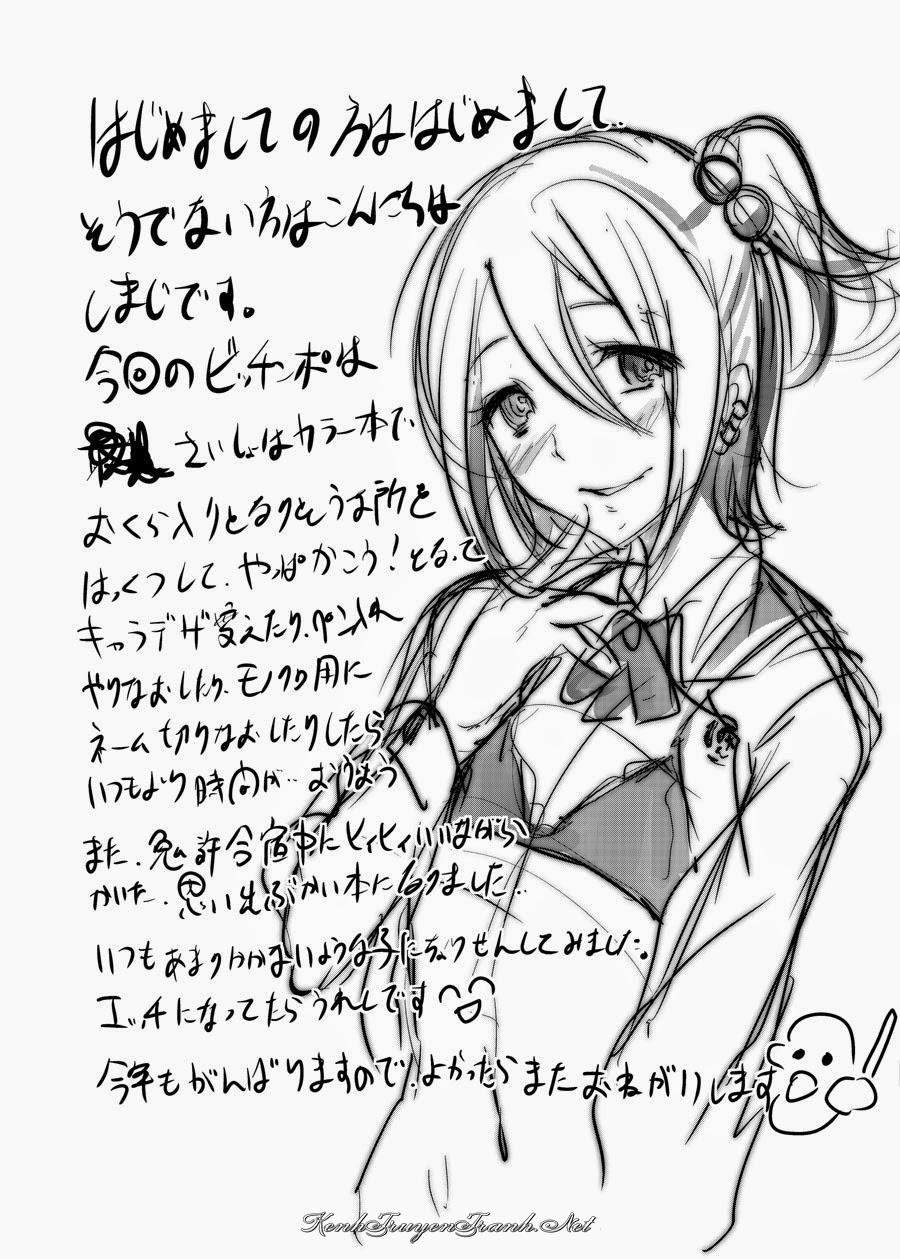 はじめましての方ははじめまして。
そうでない方はこんにちは
しまじです。
今回のビッチッポは
さいしょはカラー本で
おくら入りとなりそうな所を
はっくつして、やっぱかこう!となって
キャラデザ変えたり、ペン入れ
やりなおしたり、モノクロ用に
ネーム切りなおしたりしたら
いつもより時間が…
また、免許合宿中にヒィヒィいいながら
かいた、思い出ぶかい本になりました。
いつもあまりかかないような子にちょうせんしてみました。
エッチになってたらうれしいです
今年もがんばりますので、よかったらまたおねがいします
KenhTruyenTranh.Net